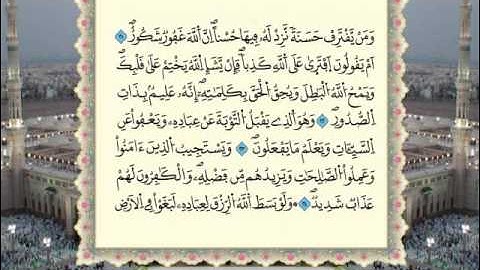 وَمَنْ يَّقْتَرِفْ حَسَنَةً نَّزِدْ لَهُۥ فِيهَا حُسْناًۖ اِنَّ اَ۬للَّهَ غَفُورٞ شَكُورٌۖ
اَمْ يَقُولُونَ اَ۪فْتَر۪يٰ عَلَي اَ۬للَّهِ كَذِباٗۖ فَإِنْ يَّشَإِ اِ۬للَّهُ يَخْتِمْ عَلَيٰ قَلْبِكَۖ
وَيَمْحُ اُ۬للَّهُ اُ۬لْبَٰطِلَ وَيُحِقُّ اُ۬لْحَقَّ بِكَلِمَٰتِهِۦٓۖ إِنَّهُۥ عَلِيمُۢ بِذَاتِ
اِ۬لصُّدُورِۖ وَهُوَ اَ۬لذِے يَقْبَلُ اُ۬لتَّوْبَةَ عَنْ عِبَادِهِۦ وَيَعْفُواْ عَنِ
اِ۬لسَّيِّـَٔاتِ وَيَعْلَمُ مَا يَفْعَلُونَۖ وَيَسْتَجِيبُ اُ۬لذِينَ ءَامَنُواْ
وَعَمِلُواْ اُ۬لصَّٰلِحَٰتِ وَيَزِيدُهُم مِّن فَضْلِهِۦۖ وَالْكَٰفِرُونَ لَهُمْ
عَذَابٞ شَدِيدٞۖ وَلَوْ بَسَطَ اَ۬للَّهُ اُ۬لرِّزْقَ لِعِبَادِهِۦ لَبَغَوْاْ فِے اِ۬لَارْضِ